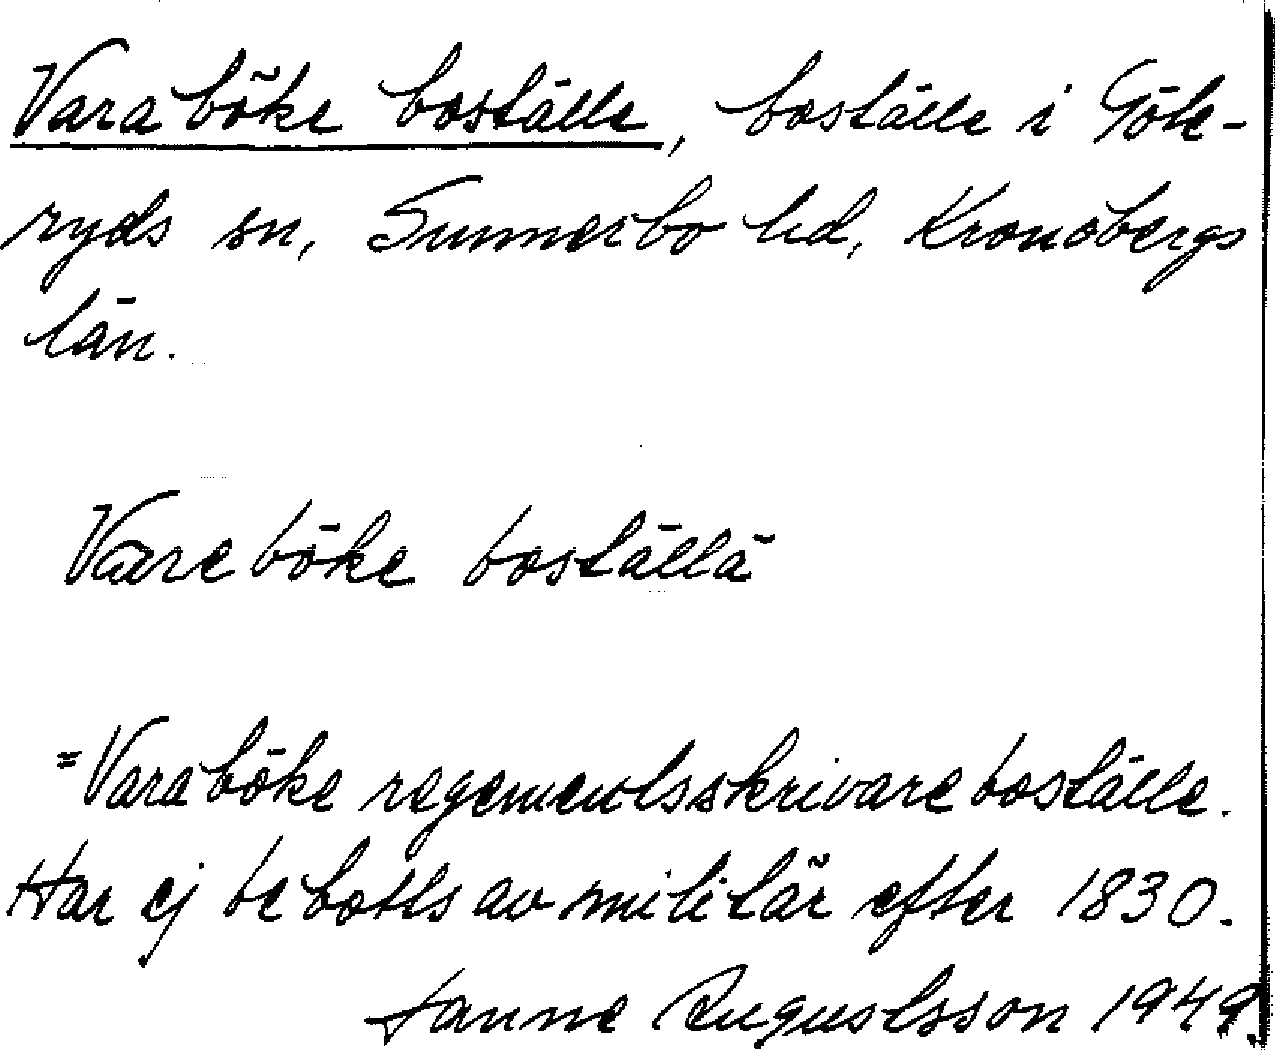 Varaböke boställe, boställe i Göte-
ryds sn, Sunnerbo hd, Kronobergs
län.
Vareböke boställä
=Varaböke regementsskrivareboställe.
Har ej bebotts av militär efter 1830.
Janne Augustsson 1949